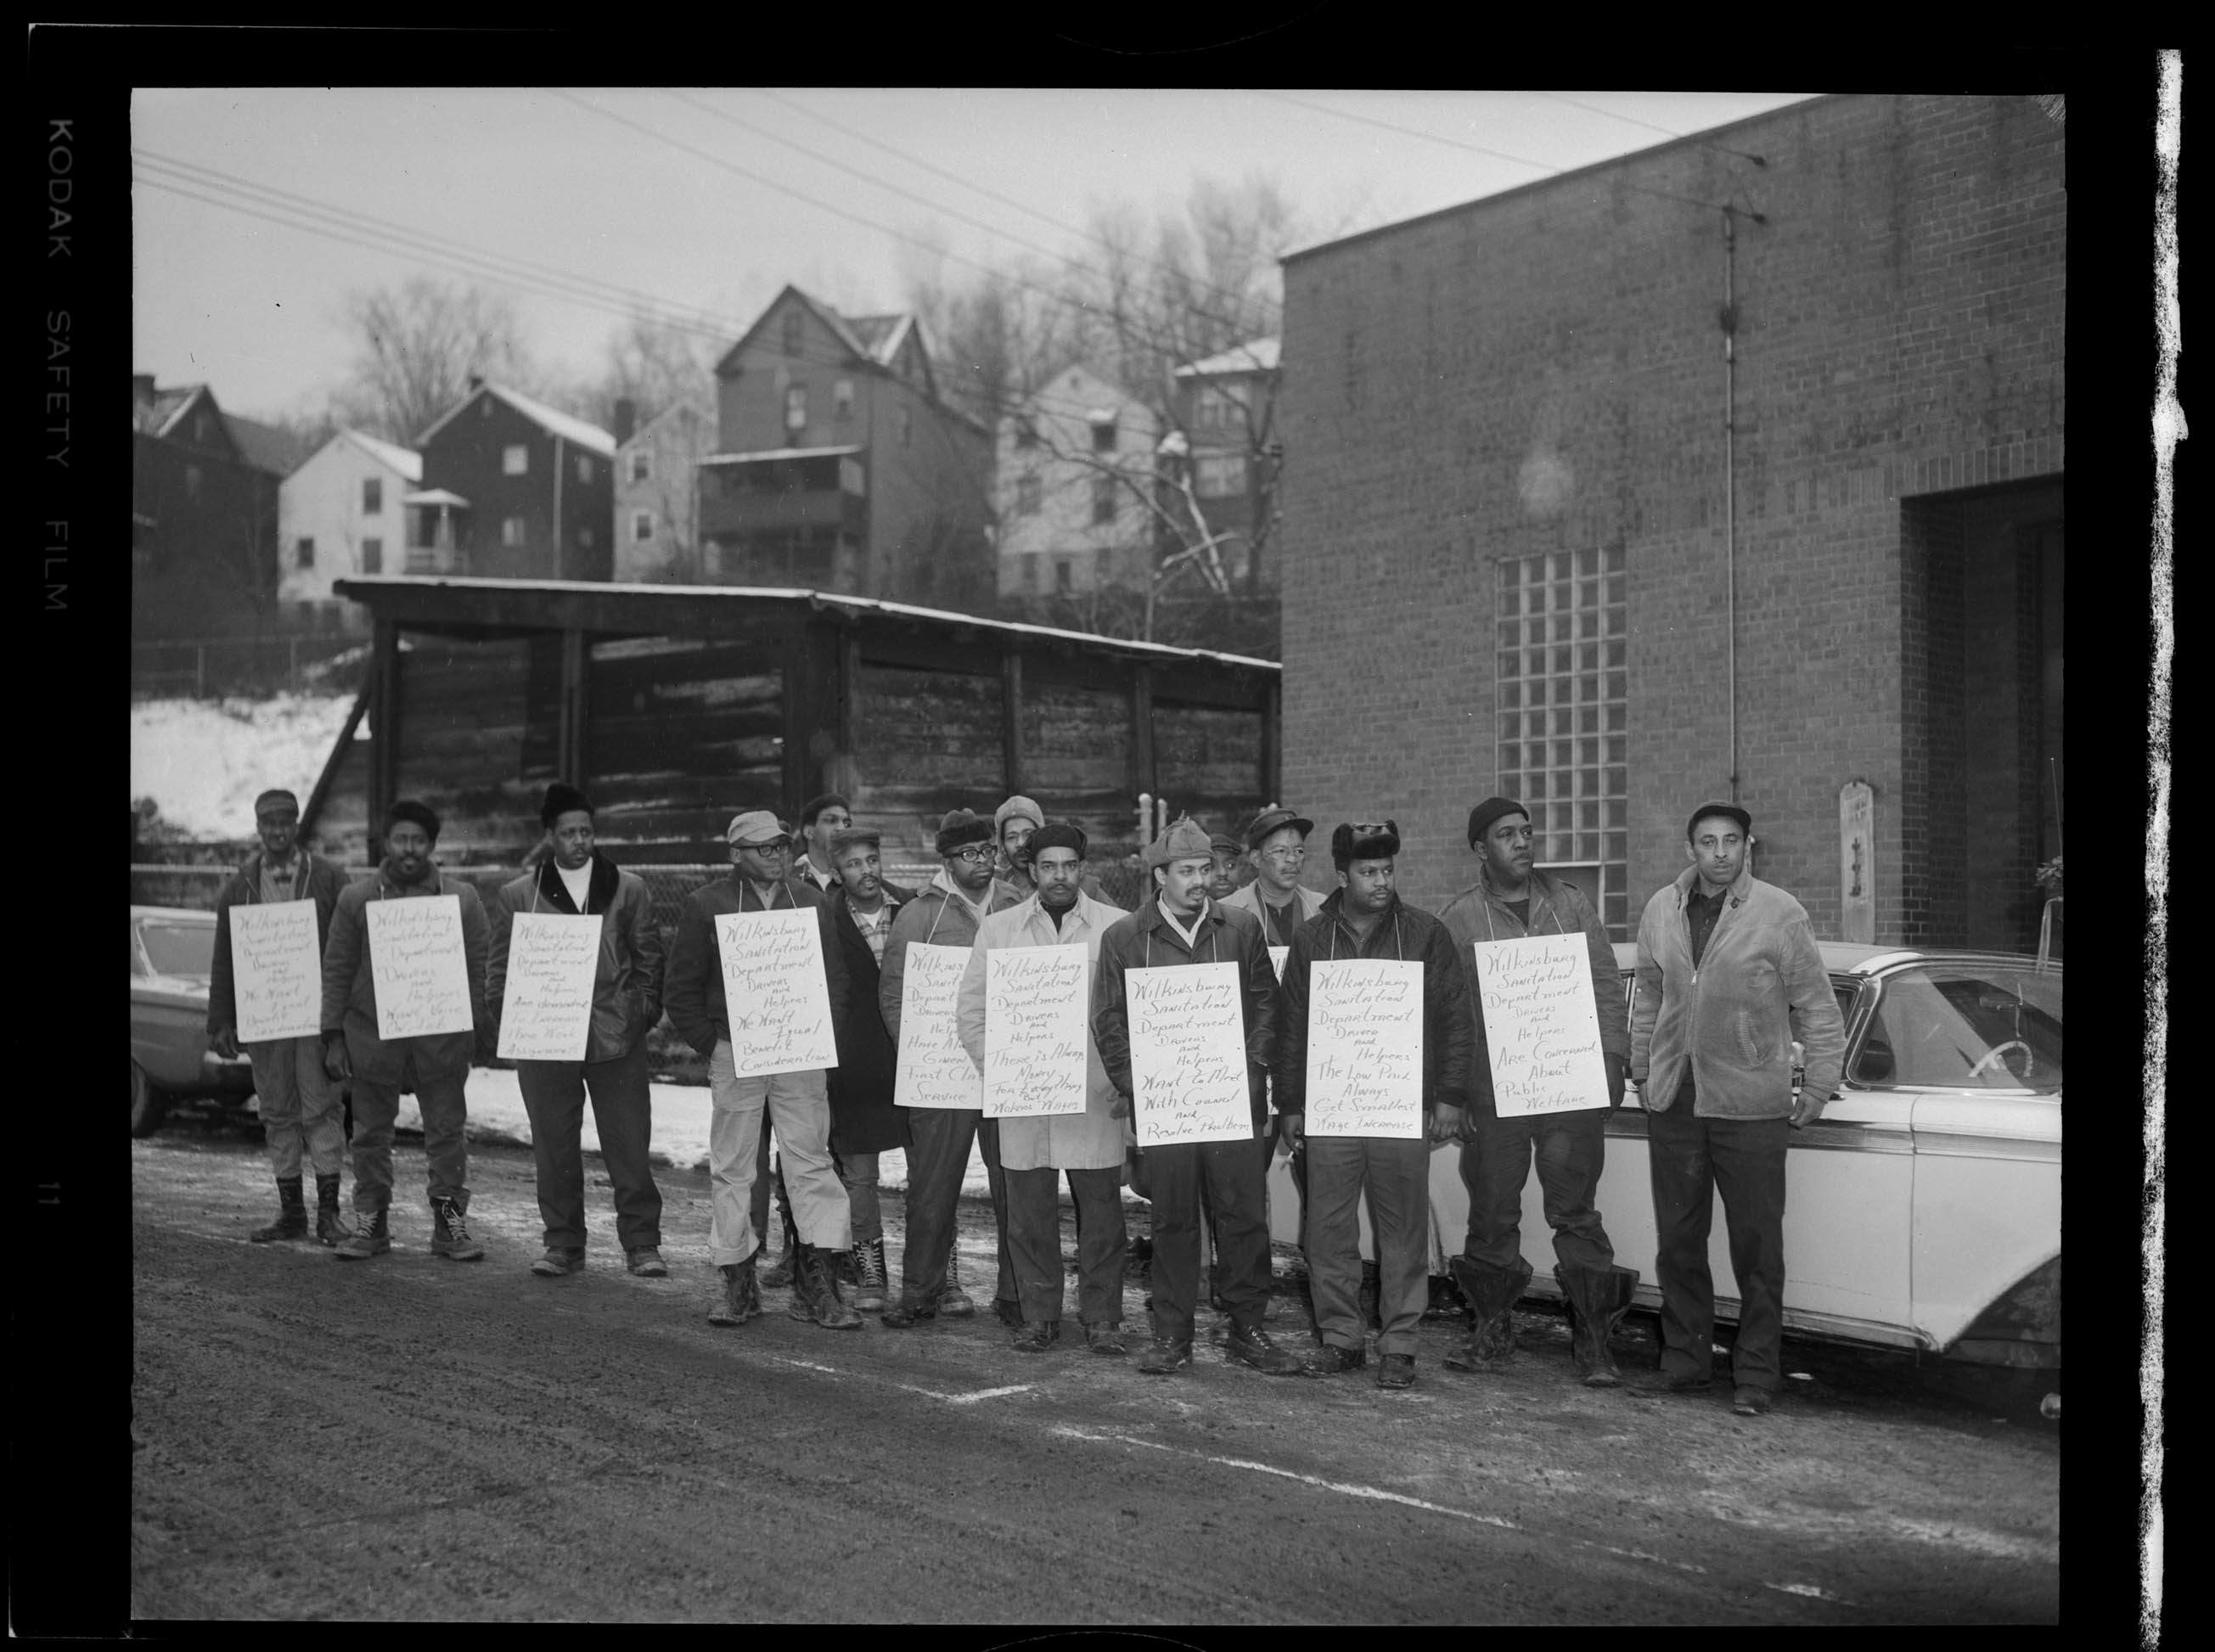 KODAK SAFETY FILM
11
Wilkinsburg
Sanitation
Department
Drivers
and
Helpers
We Want
Equal
Benefit
Consideration
Wilkinsburg
Sanitation
Department
Drivers
and
Helpers
Want
Wilkinsburg
Sanitation
Department
Drivers
and
Helpers
Are
to
There Work
Assignments
Wilkinsburg
Sanitation
Department
Drivers
and
Helpers
We Want
Equal
Benefit
Consideration
Wilkins
Sanit
Depart
Drivers
Help
Have Al
Given
First Cla
Service
Wilkinsburg
Sanitation
Department
Drivers
and
Helpers
There is Always
Money
For Everything
But
Workers Wages
Wilkinsburg
Sanitation
Department
Drivers
and
Helpers
Want to Meet
With Council
and
Resolve Problem
Wilkinsburg
Sanitation
Department
Driver
and
Helpers
The Low Paid
Always
Get Smallest
Wage Increase
Wilkinsburg
Sanitation
Department
Drivers
and
Helpers
Are Concerned
About
Public
Welfare